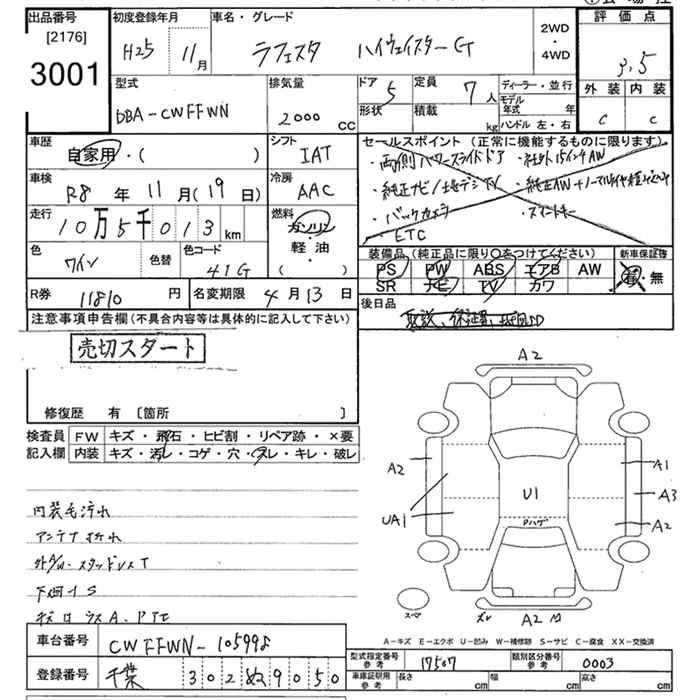 出品番号
[2176]
3001
初度登録年月
H25 11月
車名・グレード
ラフェスタ ハイウェイスターG
2WD
・
4WD
評価点
3.5
外装 内装
C C
型式
DBA-CWFFWN
排気量
2000 CC
ドア 5
形状
定員 7人
積載 kg
ディーラー・並行
モデル年式 年
ハンドル 左・右
車歴
自家用・( )
シフト
IAT
車検
R8年11月(19日)
冷房
AAC
走行
10万5千013km
燃料
ガソリン
軽・油
( )
色
ワイン
色替
色コード
41G
セールスポイント(正常に機能するものに限ります)
・両側パワースライドドア
・純正ナビ/地デジTV
・バックカメラ ・スマートキー
ETC
装備品(純正品に限り○をつけてください)
PS PW ABS エアB AW
SR ナビ TV カワ
新車保証書
有・無
R券 11810円
名変期限 4月13日
後日品
注意事項申告欄(不具合内容等は具体的に記入して下さい)
売切スタート
修復歴 有 [箇所 ]
検査員
記入欄
FW キズ・飛石・ヒビ割・リペア跡・×要
内装 キズ・汚レ・コゲ・穴・スレ・キレ・破レ
内装毛汚れ
アンテナ折れ
外A/W・スタッドレスT
下回りS
A2
A2
UA1
U1
Pハゲ
A1
A3
A2
スペア
ズレ
A2
A-キズ E-エクボ U-凹み W-補修跡 S-サビ C-腐食 XX-交換済
車台番号
CWFFWN-105998
登録番号
千葉 302 9050
型式指定番号
参考
17507
類別区分番号
参考
0003
車庫証明用
参考
長さ cm
幅 cm
高さ cm